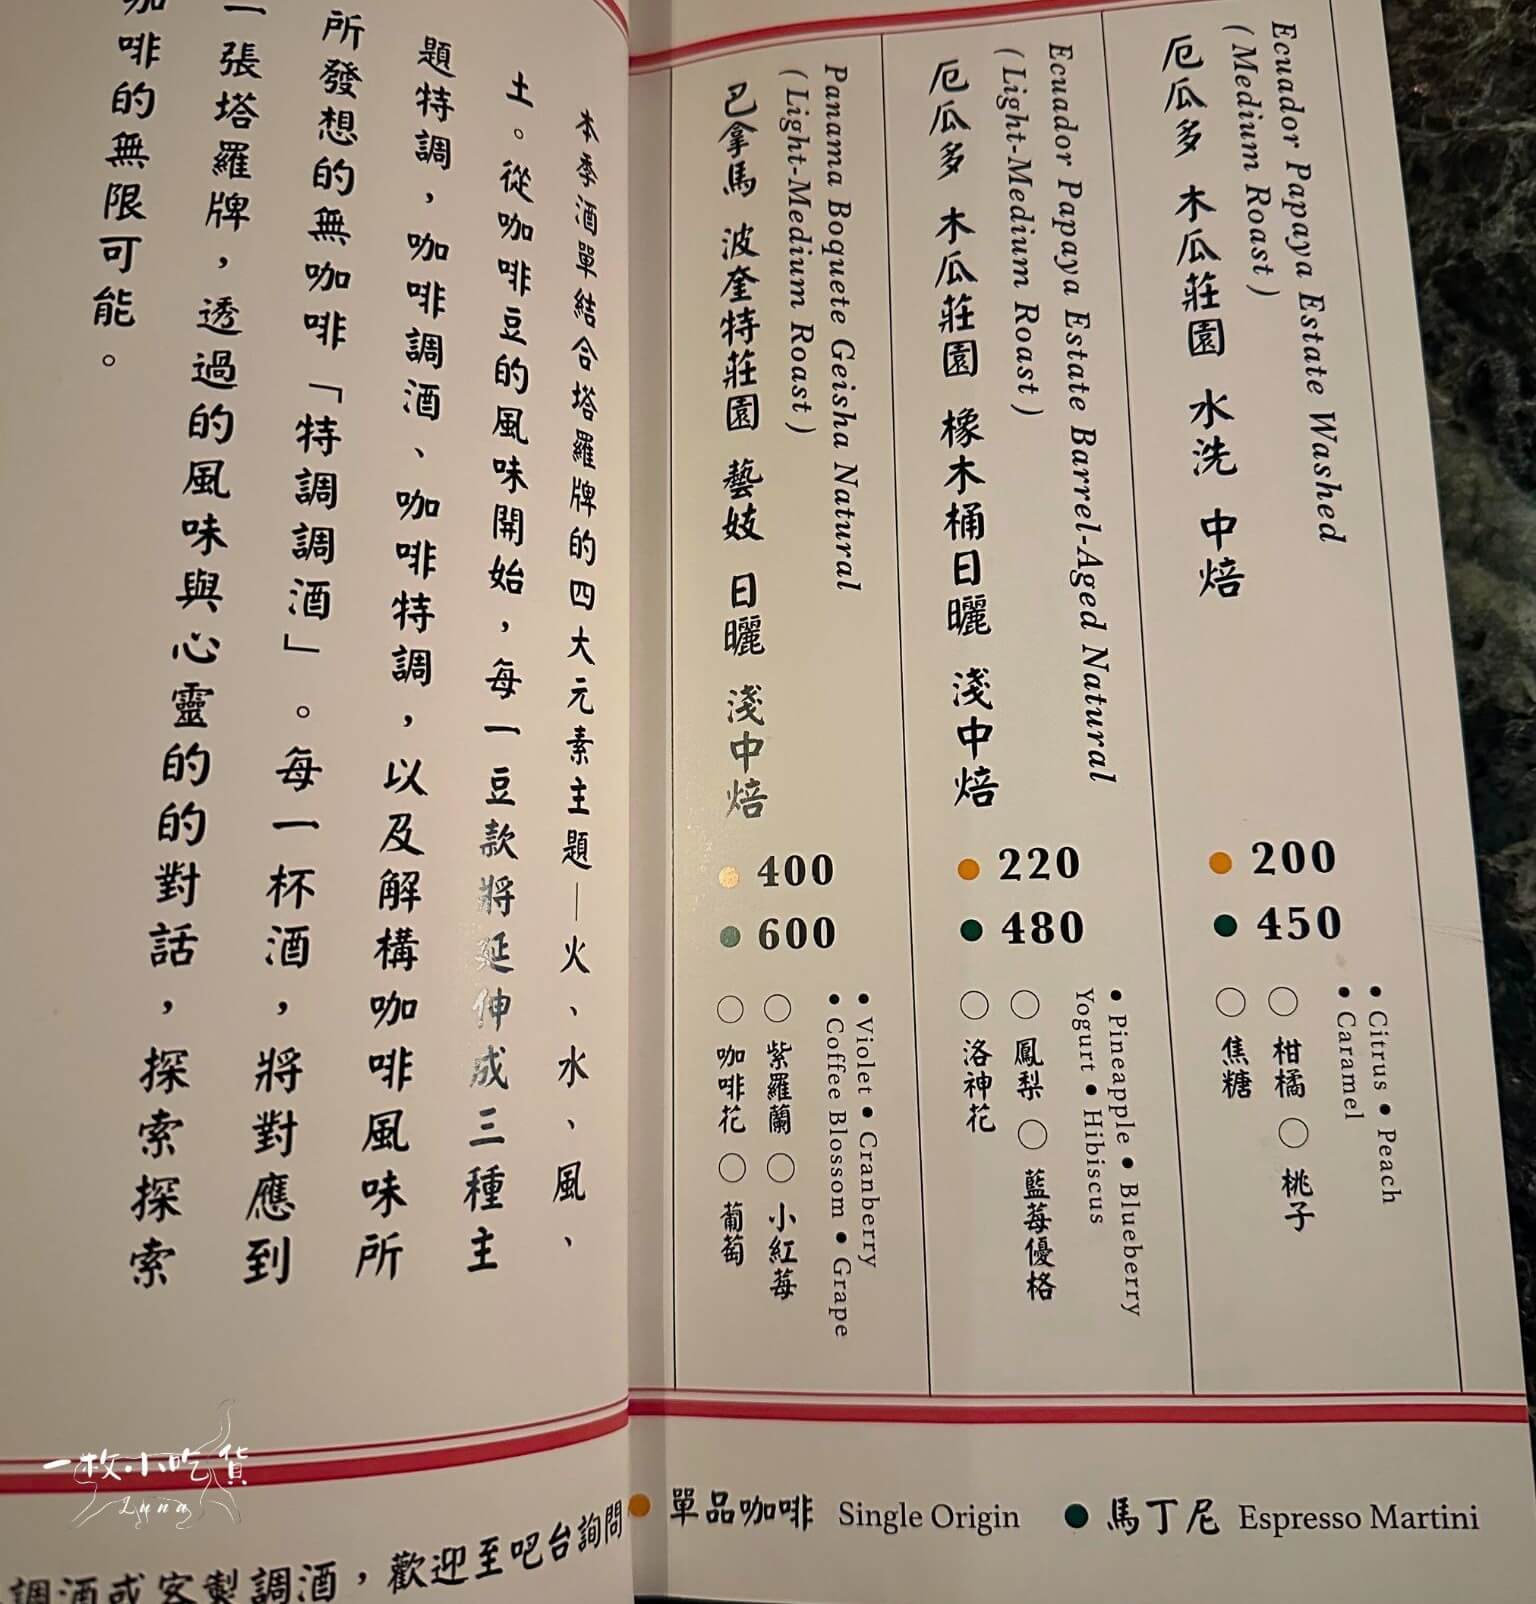 Ecuador Papaya Estate Washed
( Medium Roast )
厄瓜多 木瓜莊園 水洗 中焙
200
450
• Citrus • Peach
• Caramel
○ 柑橘 ○ 桃子
○ 焦糖
Ecuador Papaya Estate Barrel-Aged Natural
( Light-Medium Roast )
厄瓜多 木瓜莊園 橡木桶日曬 淺中焙
220
480
• Pineapple • Blueberry
Yogurt • Hibiscus
○ 鳳梨 ○ 藍莓優格
○ 洛神花
Panama Boquete Geisha Natural
( Light-Medium Roast )
巴拿馬 波奎特莊園 藝妓 日曬 淺中焙
400
600
• Violet • Cranberry
• Coffee Blossom • Grape
○ 紫羅蘭 ○ 小紅莓
○ 咖啡花 ○ 葡萄
單品咖啡 Single Origin
馬丁尼 Espresso Martini
本季酒單結合塔羅牌的四大元素主題—火、水、風、
土。從咖啡豆的風味開始，每一豆款將延伸成三種主
題特調，咖啡調酒、咖啡特調，以及解構咖啡風味所
所發想的無咖啡「特調調酒」。每一杯酒，將對應到
一張塔羅牌，透過的風味與心靈的的對話，探索探索
咖啡的無限可能。
調酒或客製調酒，歡迎至吧台詢問
一枚小吃貨
Luna